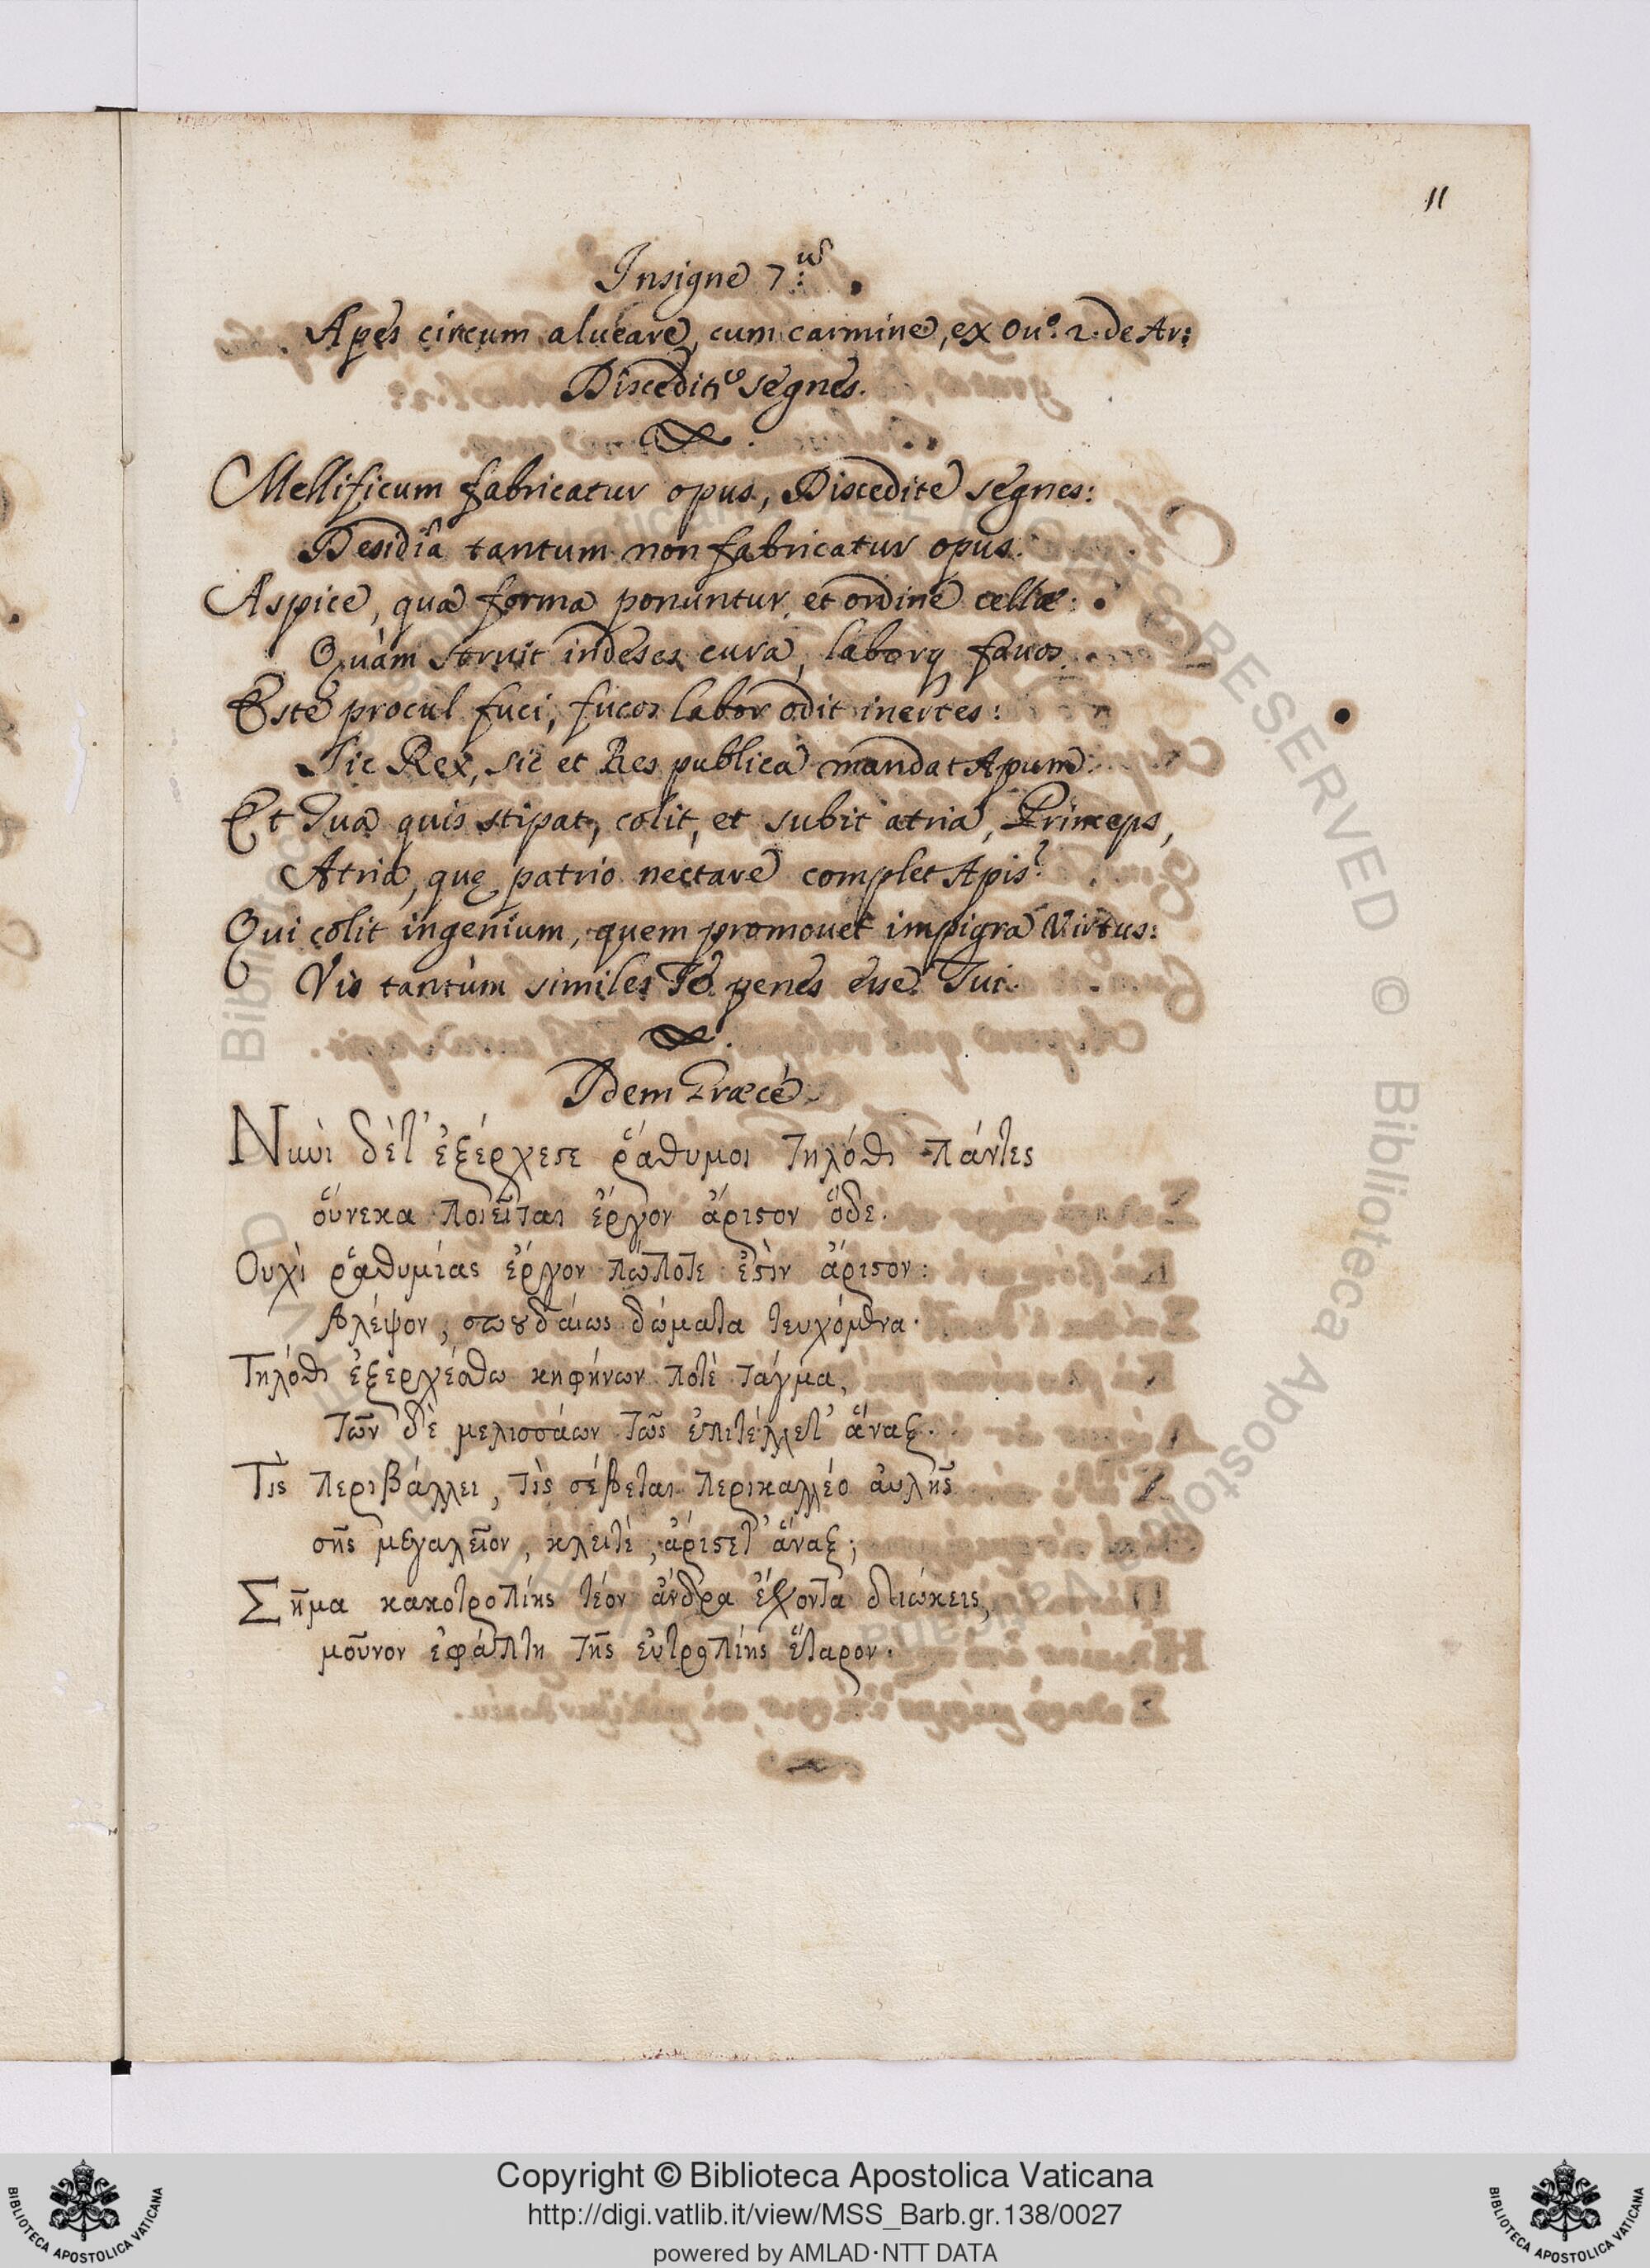 11
Insigne 7.us
Apes circum alueare, cum carmine, ex Ou.o 2. de Ar:
Discedite segnes.
Mellificum fabricatur opus, Discedite segnes:
Desidiâ tantum non fabricatur opus.
Aspice, qua forma ponuntur, et ordine cellæ:
Quàm struit indeses cura, laborq fauos.
Este procul fuci, fucos labor odit inertes:
Sic Rex, sic et Res publica mandat Apum.
Et Tua quis stipat, colit, et subit atria, Princeps,
Atria, quę patrio nectare complet Apis?
Qui colit ingenium, quem promouet impigra Virtus:
Vis tantùm similes Te penes esse Tui.
Idem Græcè
Νυνὶ δὲτ' ἐξέρχεσε ῥάθυμοι τηλόθι πάντες
οὕνεκα ποιεῖται ἔργον ἄριστον ὅδε.
Ουχὶ ῥαθυμίας ἔργον πώποτε ἐστὶν ἄριστον:
Βλέψον, σπουδαίως δώματα τευχόμενα.
Τηλόθι ἐξερχέσθω κηφήνων ποτὲ τάγμα,
τῶν δὲ μελισσάων τῶς ἐπιτέλλετ' ἄναξ.
Τὶς περιβάλλει, τὶς σέβεται περικαλλέο ἀυλῆς
σῆς μεγαλεῖον, κλειτὲ, ἀριστετ' ἄναξ;
Σῆμα κακοτροπίης τεόν ἄνδρα ἔχοντα διώκεις,
μοῦνον ἐφάπτῃ τῆς εὐτροπίης ἕταρον.
Copyright © Biblioteca Apostolica Vaticana
http://digi.vatlib.it/view/MSS_Barb.gr.138/0027
powered by AMLAD·NTT DATA
BIBLIOTECA APOSTOLICA VATICANA
BIBLIOTECA APOSTOLICA VATICANA